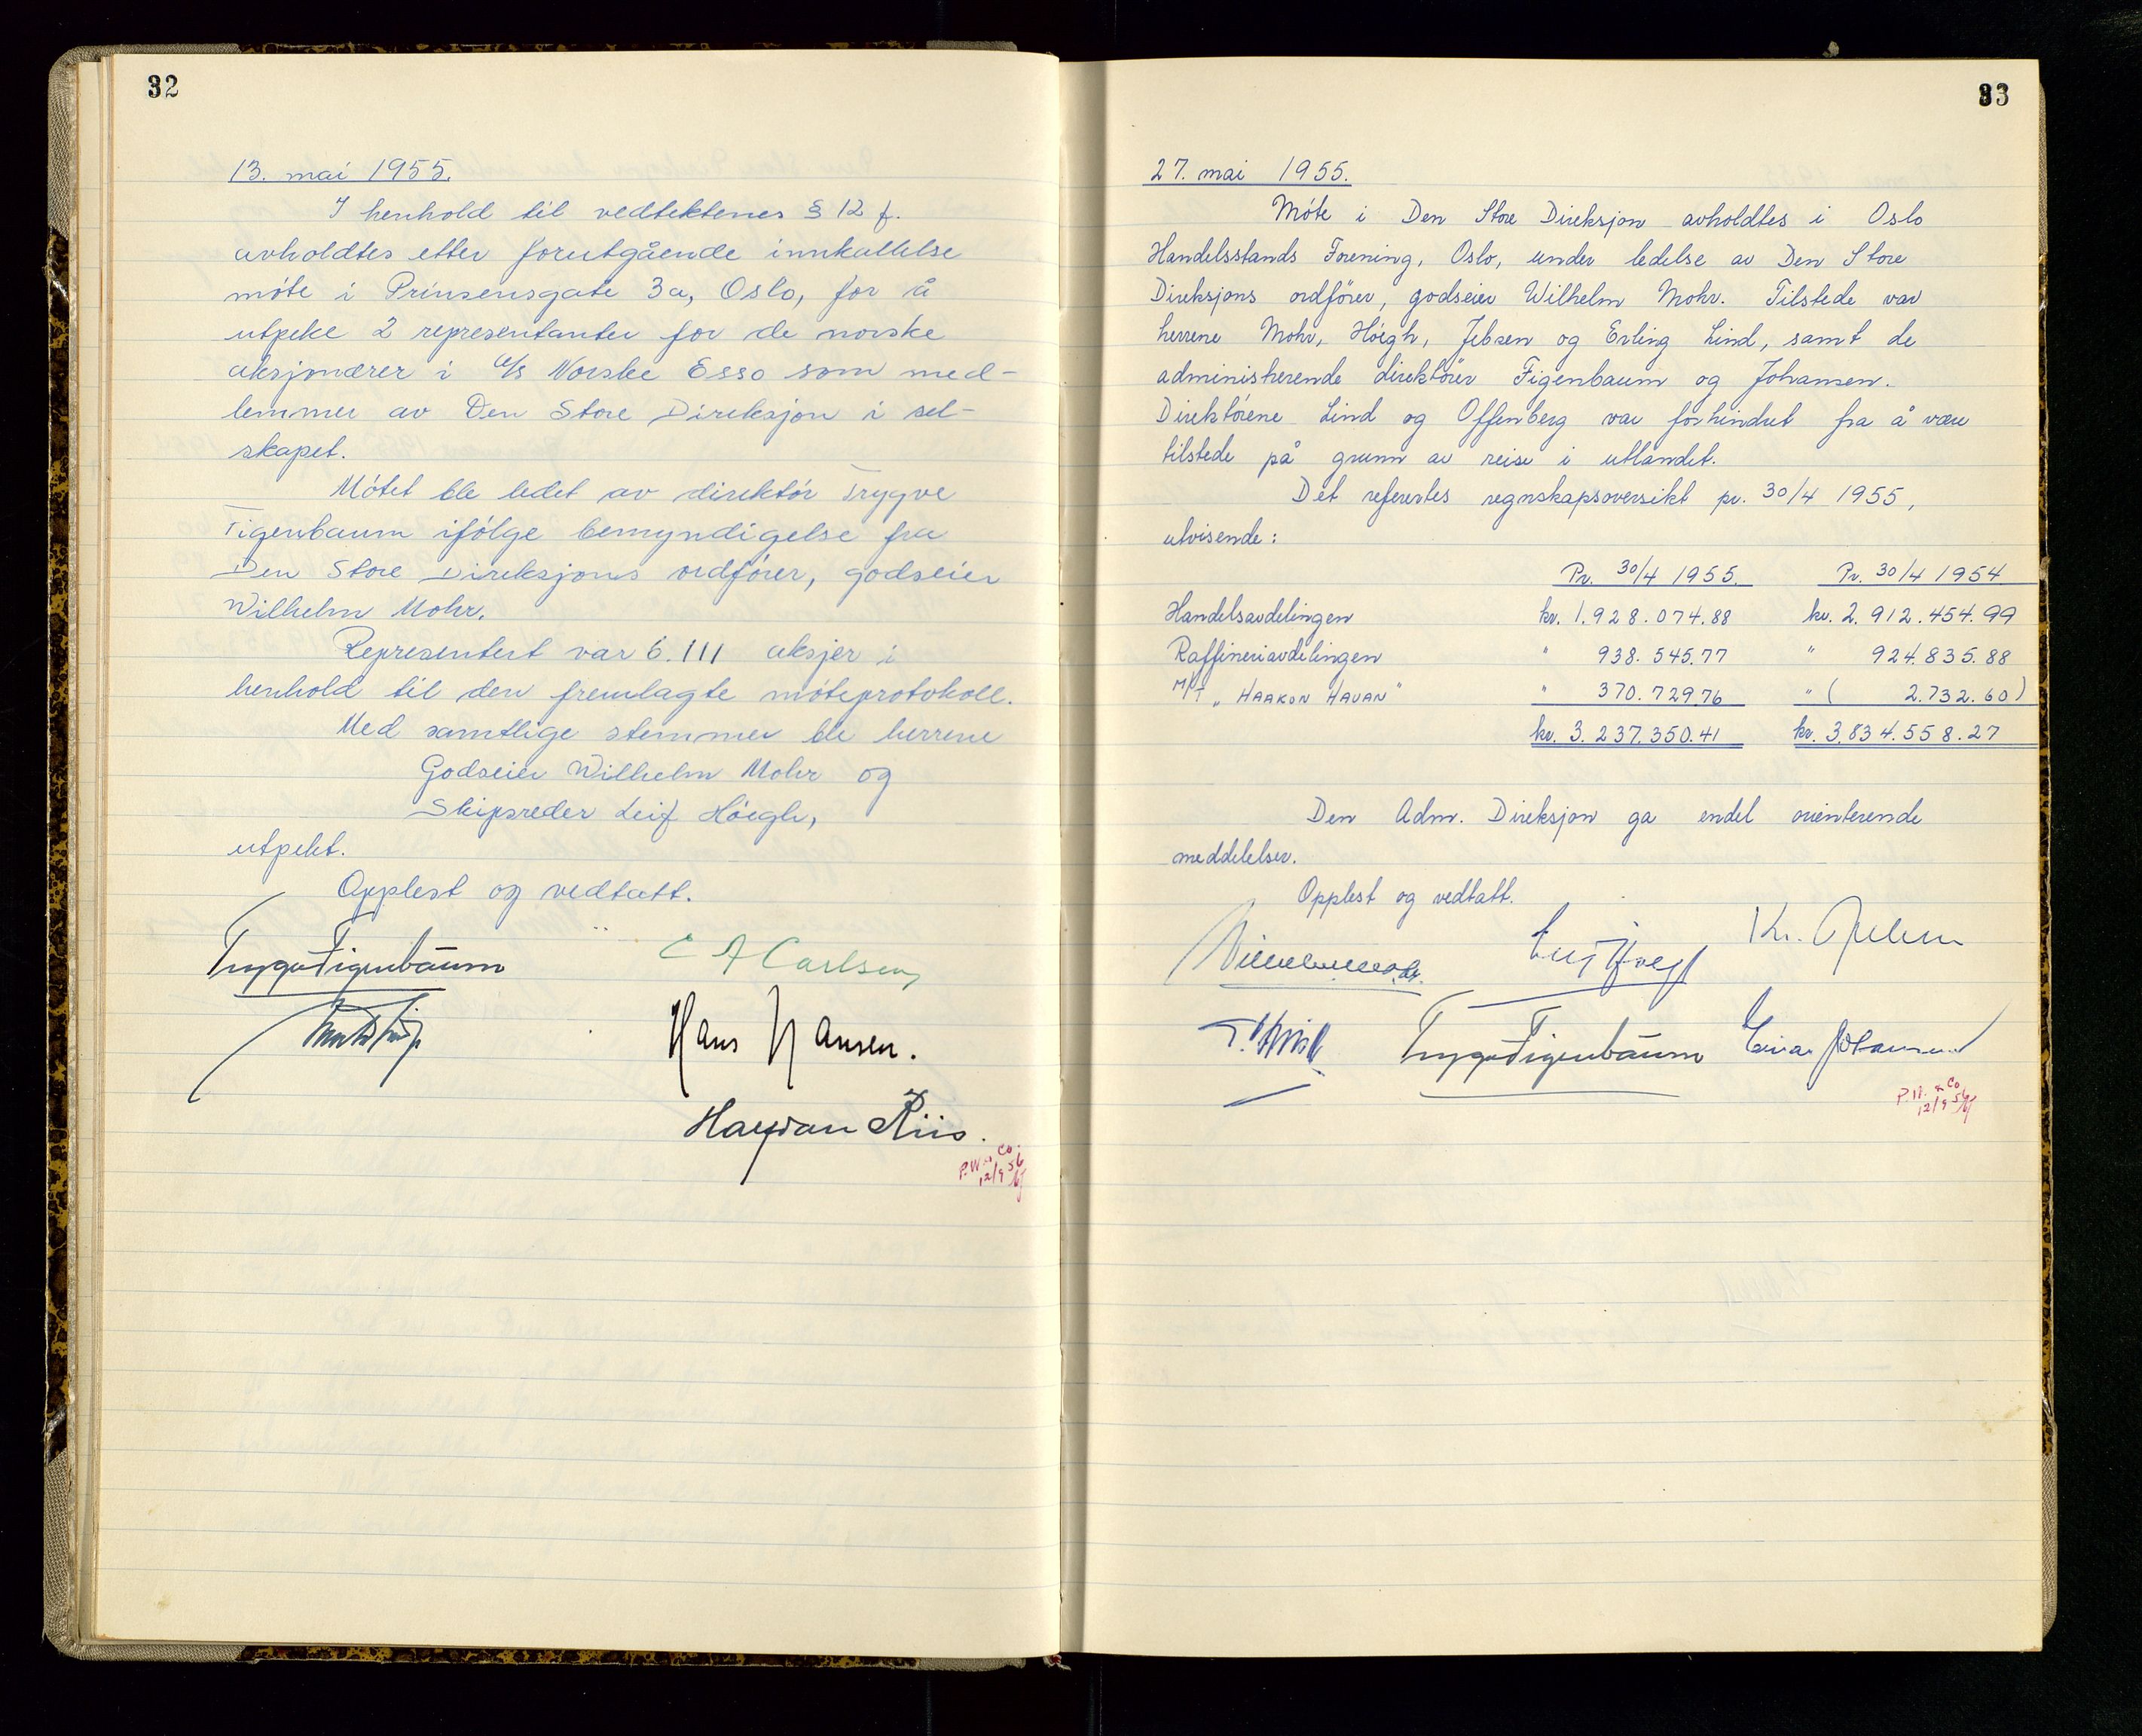 32
13. mai 1955.
I henhold til vedtektenes § 12 f.
avholdtes etter forutgående innkallelse
møte i Prinsensgate 3a, Oslo, for å
utpeke 2 representanter for de norske
aksjonærer i A/S Norske Esso som med-
lemmer av Den Store Direksjon i sel-
skapet.
Møtet ble ledet av direktør Trygve
Figenbaum ifølge bemyndigelse fra
Den Store Direksjons ordfører, godseier
Wilhelm Mohr.
Representert var 6.111 aksjer i
henhold til den fremlagte møteprotokoll.
Med samtlige stemmer ble herrene
Godseier Wilhelm Mohr og
Skipsreder Leif Höegh,
utpekt.
Opplest og vedtatt.
Trygve Figenbaum
C A Carlsen
Hans Hansen.
Halfdan Riis.
P.W. & Co.
12/9 56
33
27. mai 1955.
Møte i Den Store Direksjon avholdtes i Oslo
Handelsstands Forening, Oslo, under ledelse av Den Store
Direksjons ordfører, godseier Wilhelm Mohr. Tilstede var
herrene Mohr, Höegh, Jebsen og Erling Lind, samt de
administrerende direktører Figenbaum og Johansen.
Direktørene Lind og Offenberg var forhindret fra å være
tilstede på grunn av reise i utlandet.
Det referertes regnskapsoversikt pr. 30/4 1955,
utvisende:
Pr. 30/4 1955. Pr. 30/4 1954
Handelsavdelingen kr. 1.928.074.88 kr. 2.912.454.99
Raffineriavdelingen " 938.545.77 " 924.835.88
M/T „HAAKON HAUAN" " 370.729.76 " ( 2.732.60)
kr. 3.237.350.41 kr. 3.834.558.27
Den Adm. Direksjon ga endel orienterende
meddelelser.
Opplest og vedtatt.
Wilhelm Mohr.
Leif Höegh
Kr. Jebsen
Trygve Figenbaum
Einar Johansen
P.W. & Co
12/9 56